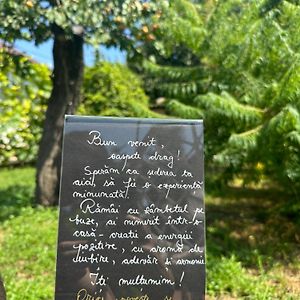 Bun venit,
oaspete drag!
Sperăm ca șederea ta
aici, să fie o experiență
minunată!
Rămâi cu zâmbetul pe
buze, ai nimerit într-o
casă - creatie a energiei
pozitive, cu aromă de
iubire, adevăr si armonie
Îți multumim!